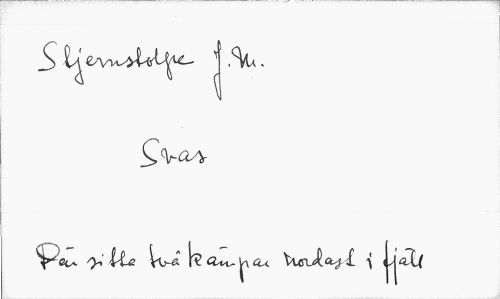 Stjernstolpe J.M.
Svar
Där sitta två kämpar nordast i fjäll